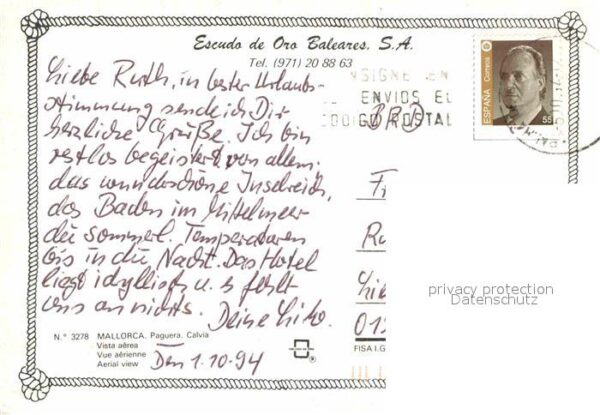 Escudo de Oro Baleares. S.A.
Tel. (971) 20 88 63
Liebe Ruth, in bester Urlaubs-
stimmung sende ich Dir
herzliche Grüße. Ich bin
restlos begeistert von allem:
das wunderschöne Inselreich,
das Baden im Mittelmeer
die sommerl. Temperaturen
bis in die Nacht. Das Hotel
liegt idyllisch u. es fehlt
uns an nichts.
Deine
N.º 3278 MALLORCA. Paguera. Calvia
Vista aérea
Vue aérienne
Aerial view
Den 1.10.94
NSIGNE EN
ENVIOS EL
CODIGO POSTAL
BRD
ESPAÑA
Correos
55
F
Ru
013
FISA I.G
privacy protection
Datenschutz